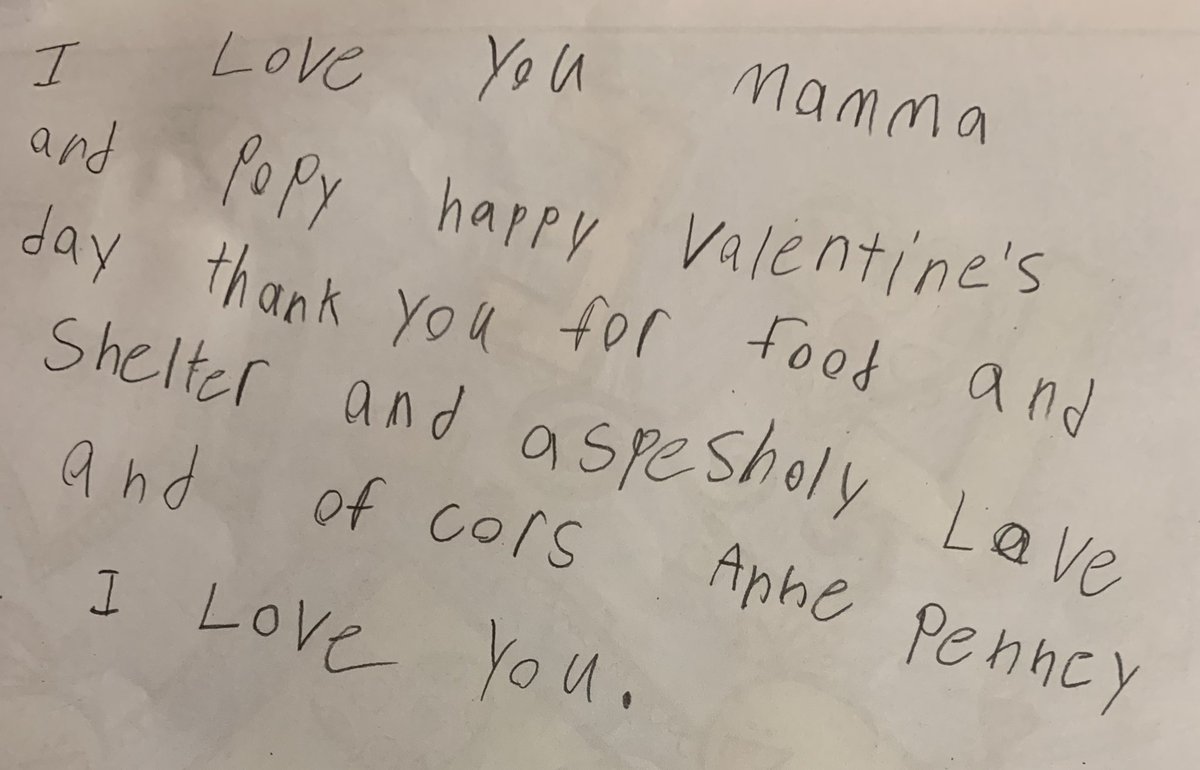 I Love You Mamma
and Popy happy Valentine's
day thank you for food and
Shelter and aspesholy Love
and of cors Anne Penney
I Love You.